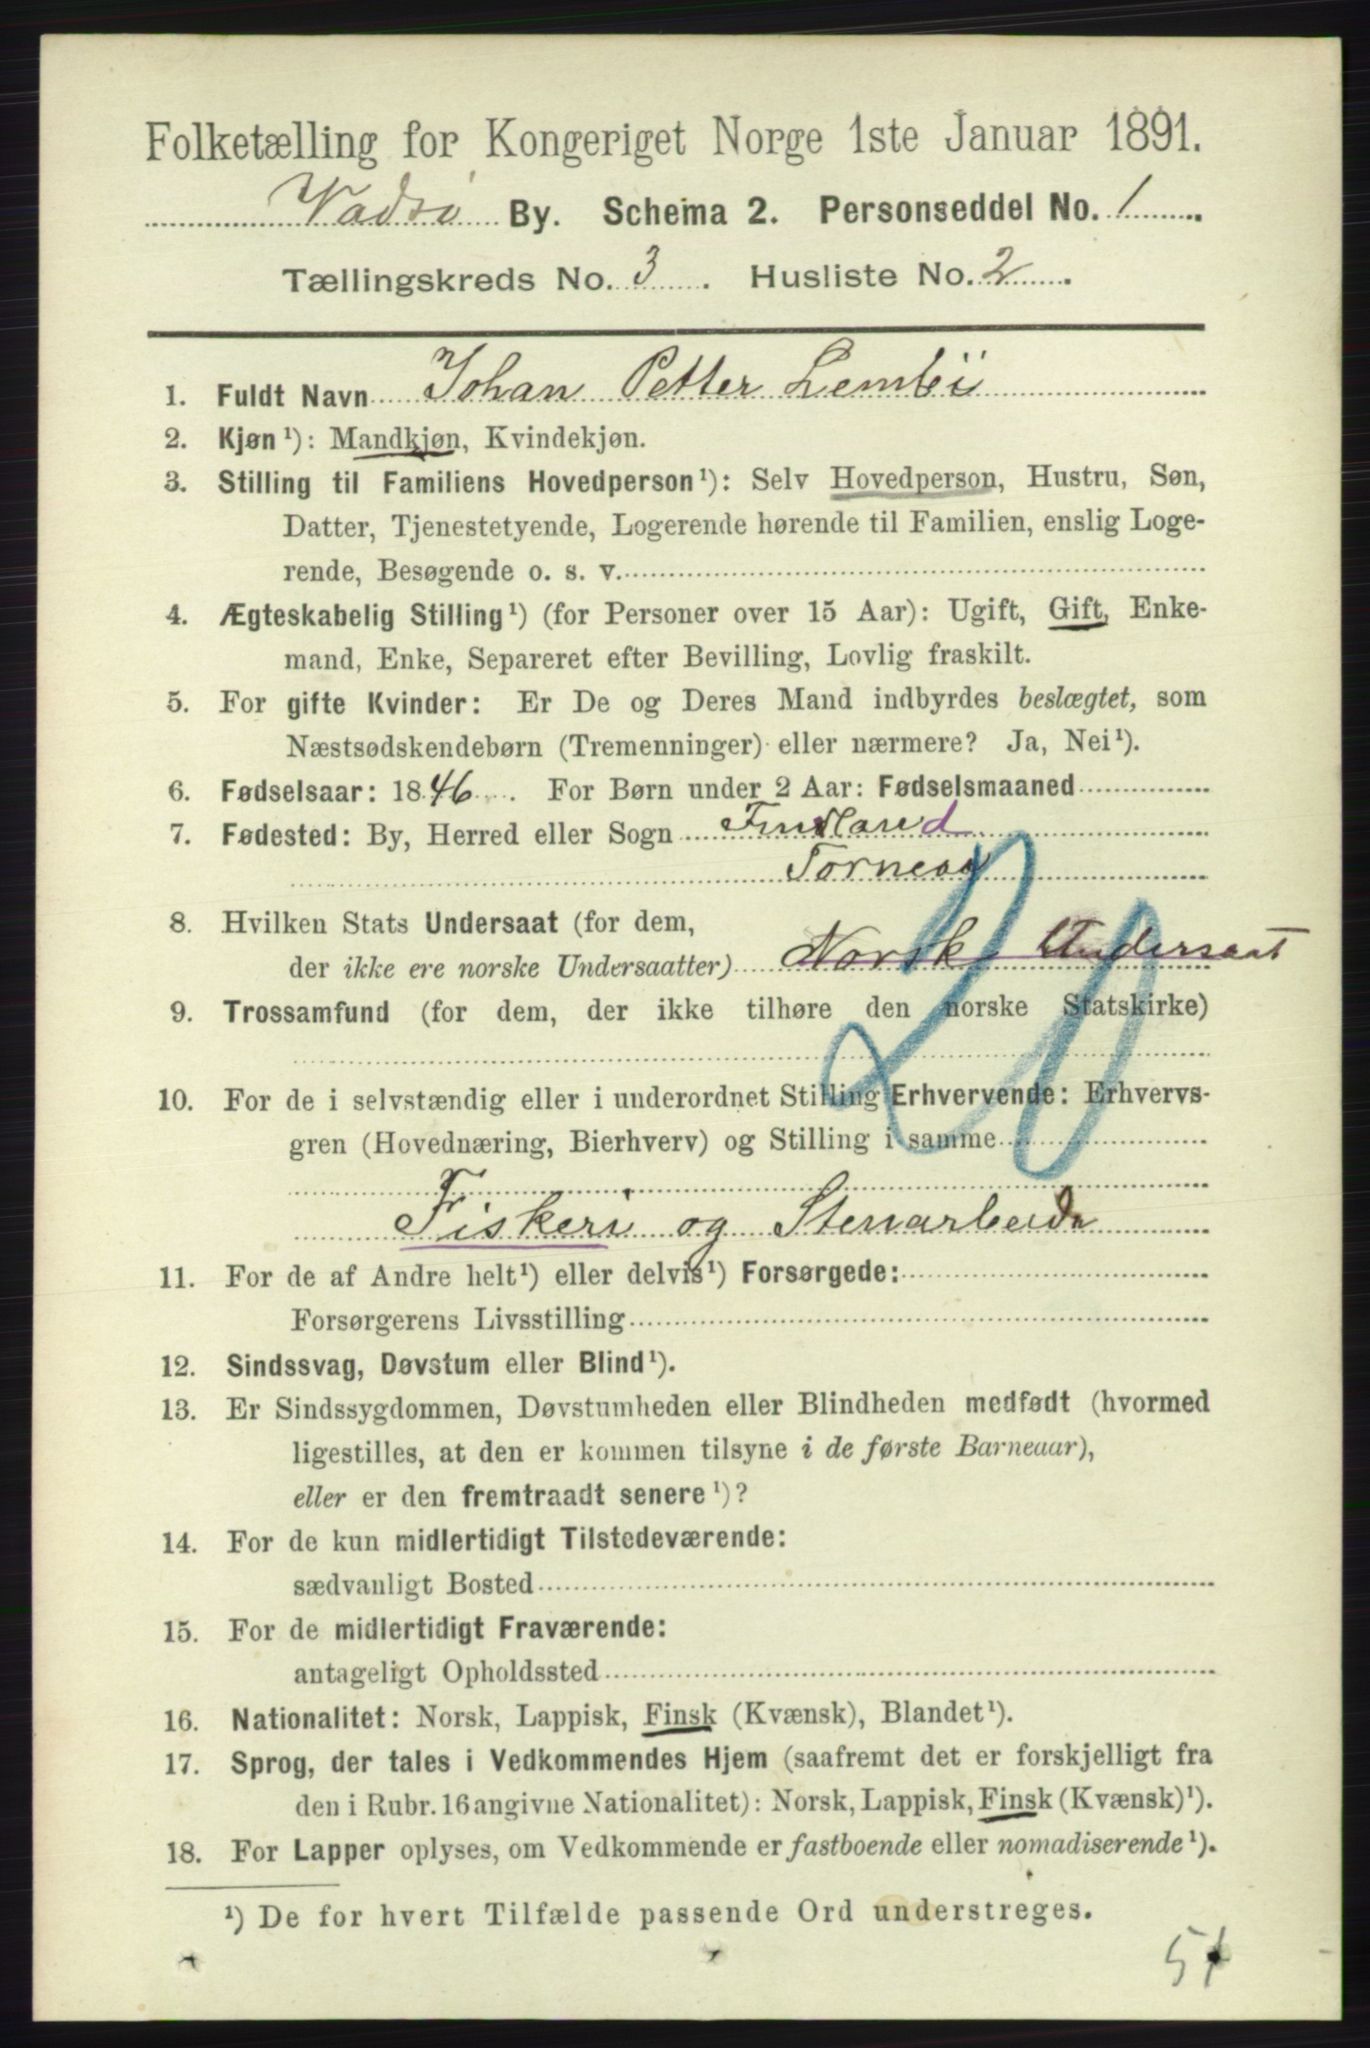 Folketælling for Kongeriget Norge 1ste Januar 1891.
Vadsø By. Schema 2. Personseddel No. 1
Tællingskreds No. 3. Husliste No. 2.
1. Fuldt Navn Johan Petter
2. Kjøn ¹): Mandkjøn, Kvindekjøn.
3. Stilling til Familiens Hovedperson¹): Selv Hovedperson, Hustru, Søn,
Datter, Tjenestetyende, Logerende hørende til Familien, enslig Loge-
rende, Besøgende o. s. v.
4. Ægteskabelig Stilling¹) (for Personer over 15 Aar): Ugift, Gift, Enke-
mand, Enke, Separeret efter Bevilling, Lovlig fraskilt.
5. For gifte Kvinder: Er De og Deres Mand indbyrdes beslægtet, som
Næstsødskendebørn (Tremenninger) eller nærmere? Ja, Nei¹).
6. Fødselsaar: 1846. For Børn under 2 Aar: Fødselsmaaned
7. Fødested: By, Herred eller Sogn Finland
Torneaa
8. Hvilken Stats Undersaat (for dem,
der ikke ere norske Undersaatter) Norsk Undersaat
9. Trossamfund (for dem, der ikke tilhøre den norske Statskirke)
20
10. For de i selvstændig eller i underordnet Stilling Erhvervende: Erhvervs-
gren (Hovednæring, Bierhverv) og Stilling i samme
Fiskeri og Stenarbeide
11. For de af Andre helt¹) eller delvis¹) Forsørgede:
Forsørgerens Livsstilling
12. Sindssvag, Døvstum eller Blind¹).
13. Er Sindssygdommen, Døvstumheden eller Blindheden medfødt (hvormed
ligestilles, at den er kommen tilsyne i de første Barneaar),
eller er den fremtraadt senere ¹)?
14. For de kun midlertidigt Tilstedeværende:
sædvanligt Bosted
15. For de midlertidigt Fraværende:
antageligt Opholdssted
16. Nationalitet: Norsk, Lappisk, Finsk (Kvænsk), Blandet¹).
17. Sprog, der tales i Vedkommendes Hjem (saafremt det er forskjelligt fra
den i Rubr. 16 angivne Nationalitet): Norsk, Lappisk, Finsk (Kvænsk)¹).
18. For Lapper oplyses, om Vedkommende er fastboende eller nomadiserende¹).
¹) De for hvert Tilfælde passende Ord understreges.
51